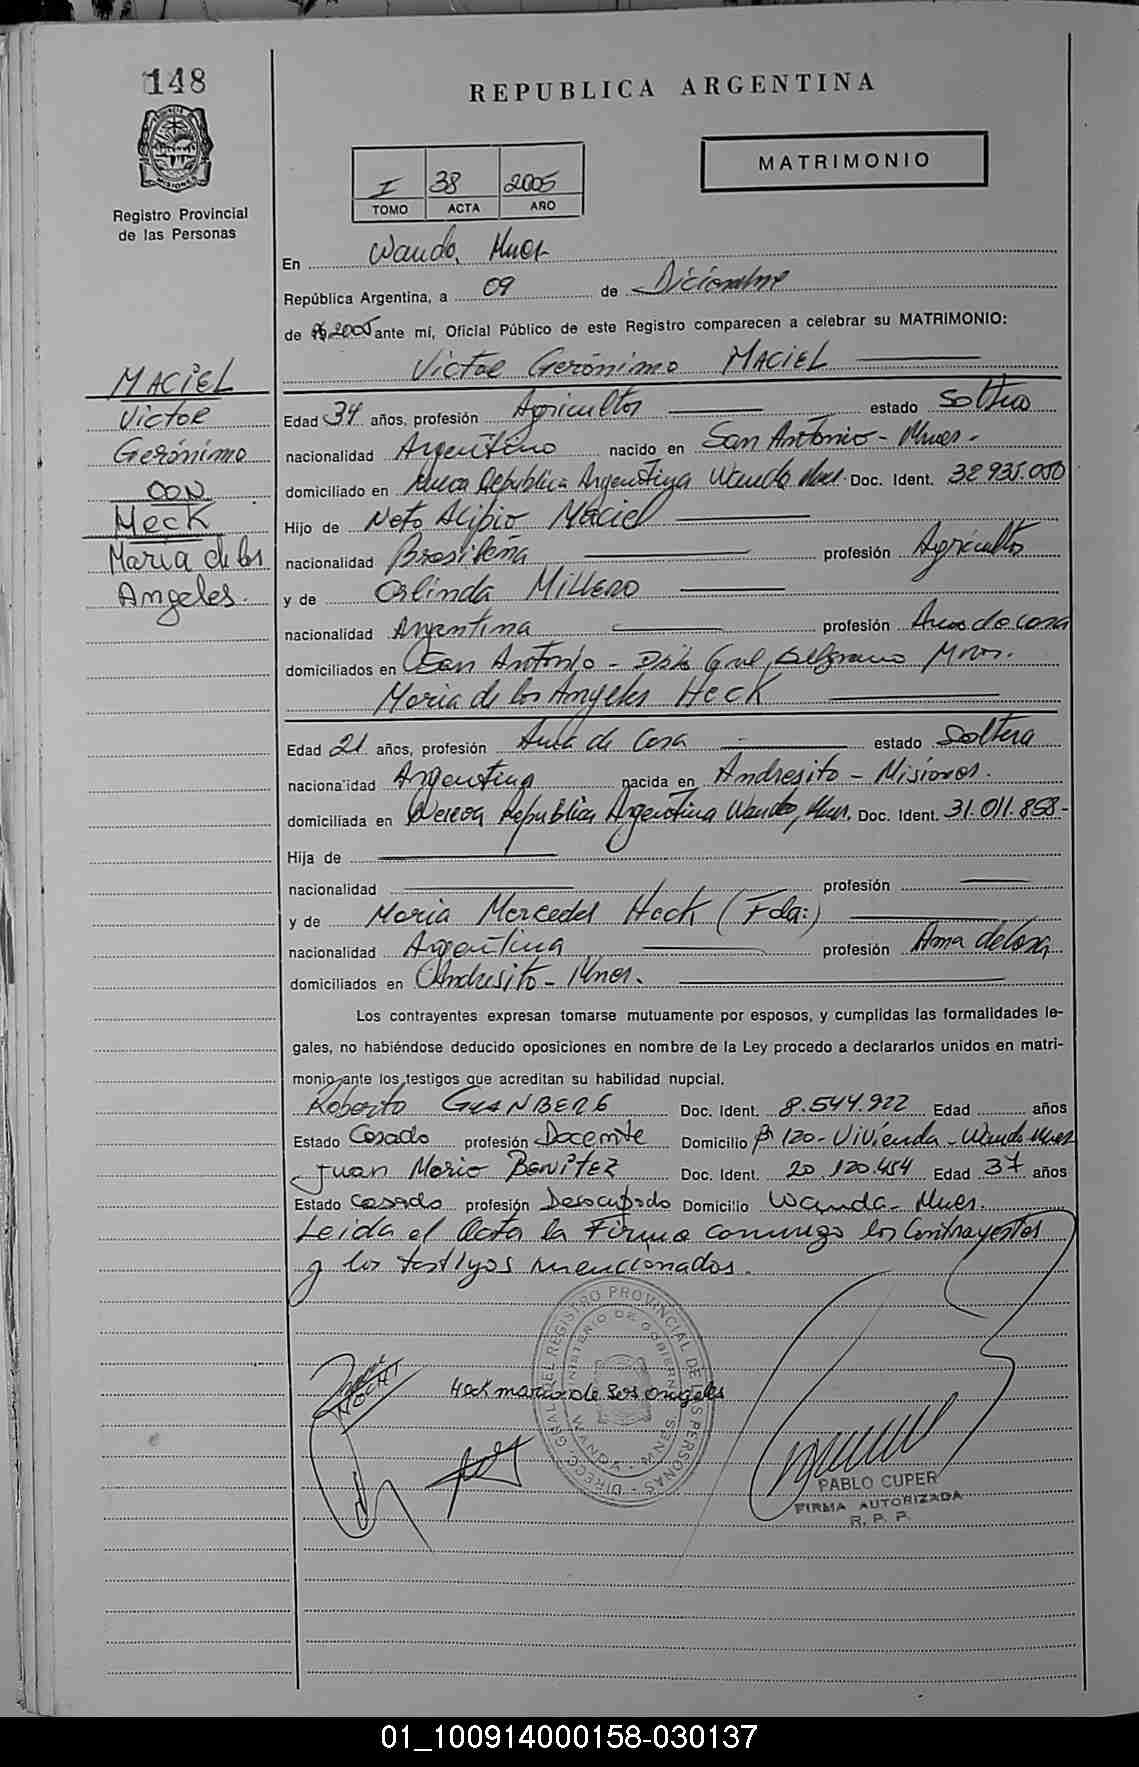 148
REPUBLICA ARGENTINA
MATRIMONIO
I 38 2005
TOMO ACTA AÑO
Registro Provincial
de las Personas
En Wanda, Mnes-
República Argentina, a 09 de Diciembre
de 2005 ante mí, Oficial Público de este Registro comparecen a celebrar su MATRIMONIO:
Victor Gerónimo MACIEL
MACIEL
Victor
Gerónimo
CON
Heck
Maria de los
Angeles.
Edad 34 años, profesión Agricultor estado Soltero
nacionalidad Argentino nacido en San Antonio - Mnes.
domiciliado en Nueva Republica Argentina Wanda Mnes. Doc. Ident. 32.935.050
Hijo de Neto Alipio Maciel
nacionalidad Brasileña profesión Agricultor
y de Orlinda MILLERO
nacionalidad Argentina profesión Ama de casa
domiciliados en San Antonio - Dpto Gral Belgrano Mnes.
Maria de los Angeles Heck
Edad 21 años, profesión Ama de Casa estado Soltera
nacionalidad Argentina nacida en Andresito - Misiones.
domiciliada en Nueva Republica Argentina Wanda, Mnes. Doc. Ident. 31.011.858-
Hija de
nacionalidad profesión
y de Maria Mercedes Heck (Fda:)
nacionalidad Argentina profesión Ama de Casa
domiciliados en Andresito - Mnes.
Los contrayentes expresan tomarse mutuamente por esposos, y cumplidas las formalidades le-
gales, no habiéndose deducido oposiciones en nombre de la Ley procedo a declararlos unidos en matri-
monio ante los testigos que acreditan su habilidad nupcial.
Roberto GUANBERG Doc. Ident. 8.544.922 Edad años
Estado Casado profesión Docente Domicilio 120 - Vivienda - Wanda Mnes
Juan Mario BENITEZ Doc. Ident. 20.120.454 Edad 37 años
Estado Casado profesión Desocupado Domicilio Wanda - Mnes.
Leida el Acta la Firma conmigo los Contrayentes
y los testigos mencionados.
DIRECC. GRAL. DEL REGISTRO PROVINCIAL DE LAS PERSONAS
MINISTERIO DE GOBIERNO
WANDA - MNES
Heck maria de los angeles
PABLO CUPER
FIRMA AUTORIZADA
R. P. P.
01_100914000158-030137